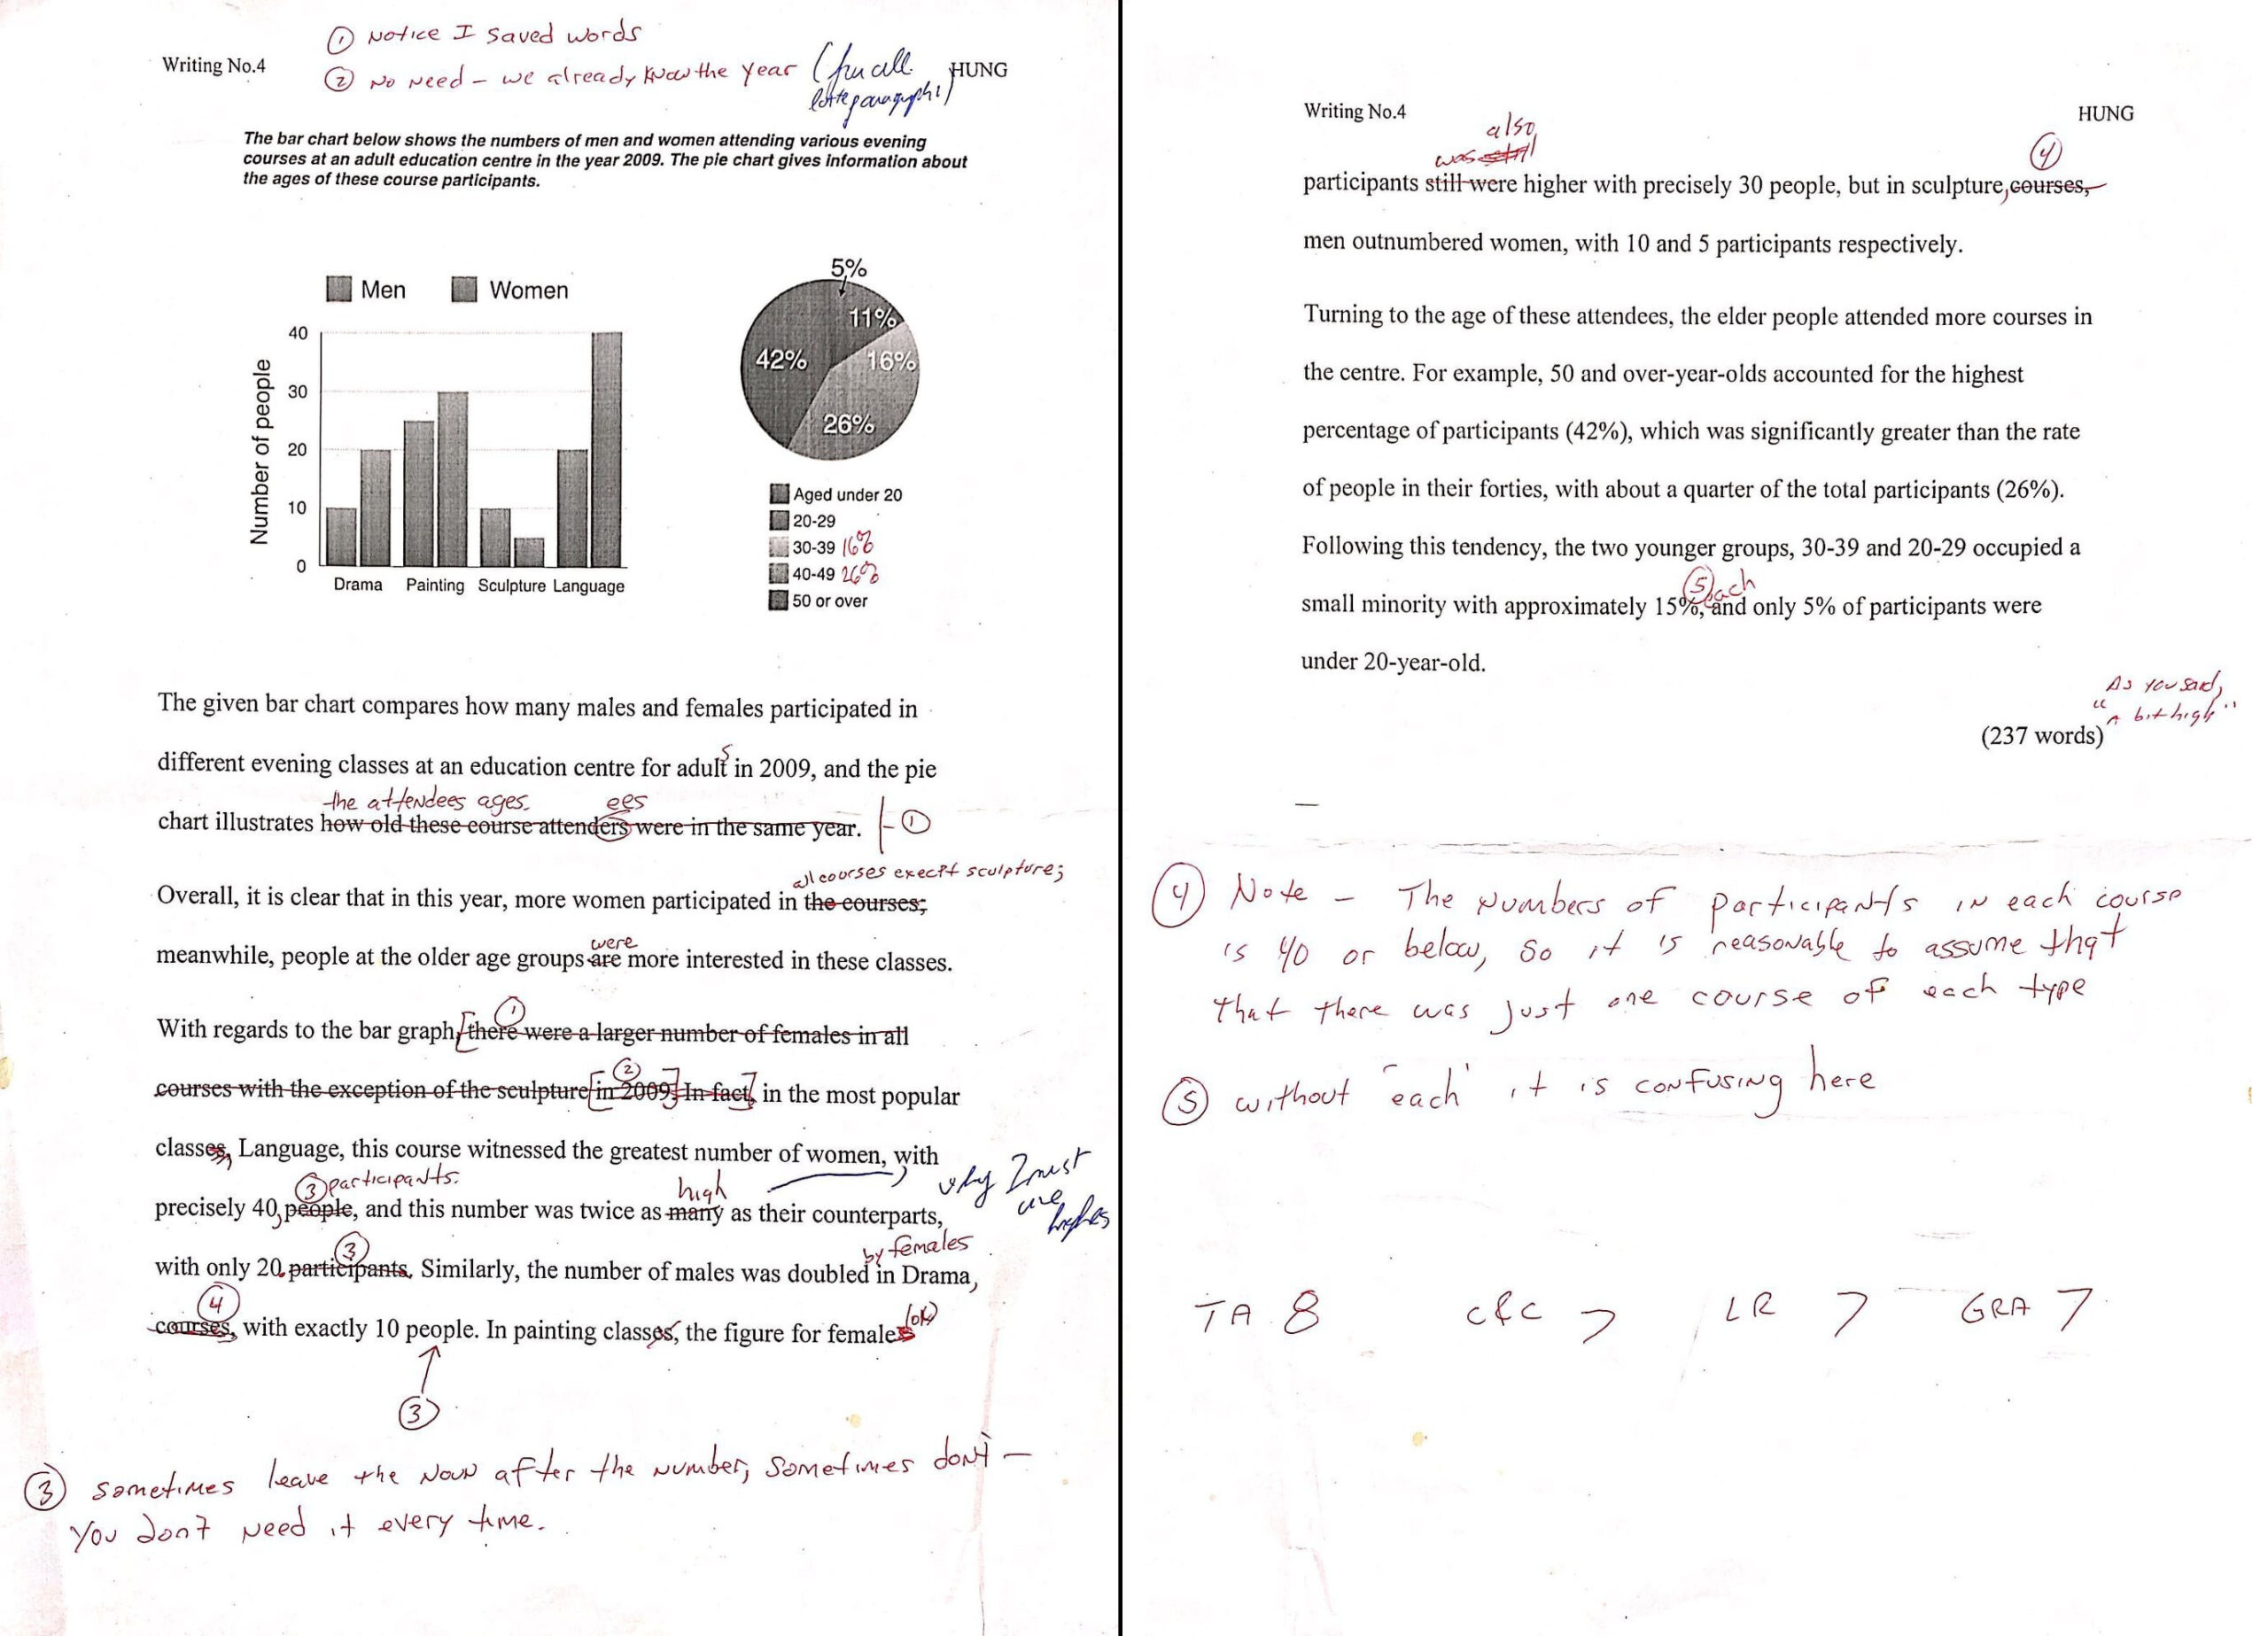 ① Notice I saved words
Writing No.4
② No need – we already know the year (for all
HUNG
The bar chart below shows the numbers of men and women attending various evening
courses at an adult education centre in the year 2009. The pie chart gives information about
the ages of these course participants.
Men Women
Number of people
40
30
20
10
0
Drama Painting Sculpture Language
5%
11%
16%
26%
42%
Aged under 20
20-29
30-39 16%
40-49 26%
50 or over
The given bar chart compares how many males and females participated in
s
different evening classes at an education centre for adult in 2009, and the pie
the attendees ages. ees
chart illustrates how old these course attenders were in the same year. ①
all courses execpt sculpture;
Overall, it is clear that in this year, more women participated in the courses;
were
meanwhile, people at the older age groups are more interested in these classes.
①
With regards to the bar graph, [there were a larger number of females in all
②
courses with the exception of the sculpture [in 2009]. In fact], in the most popular
classes, Language, this course witnessed the greatest number of women, with
③ participants. high
why I must
use
precisely 40, people, and this number was twice as many as their counterparts,
③ by females
with only 20. participants. Similarly, the number of males was doubled in Drama,
④
courses, with exactly 10 people. In painting classes, the figure for females (ok)
③
③ sometimes leave the noun after the number, sometimes don't –
you don't need it every time.
Writing No.4
HUNG
also
was still ④
participants still were higher with precisely 30 people, but in sculpture, courses,
men outnumbered women, with 10 and 5 participants respectively.
Turning to the age of these attendees, the elder people attended more courses in
the centre. For example, 50 and over-year-olds accounted for the highest
percentage of participants (42%), which was significantly greater than the rate
of people in their forties, with about a quarter of the total participants (26%).
Following this tendency, the two younger groups, 30-39 and 20-29 occupied a
⑤ each
small minority with approximately 15%, and only 5% of participants were
under 20-year-old.
As you said,
"a bit high"
(237 words)
④ Note – The numbers of participants in each course
is 40 or below, so it is reasonable to assume that
that there was just one course of each type
⑤ without 'each' it is confusing here
TA 8 C&C 7 LR 7 GRA 7